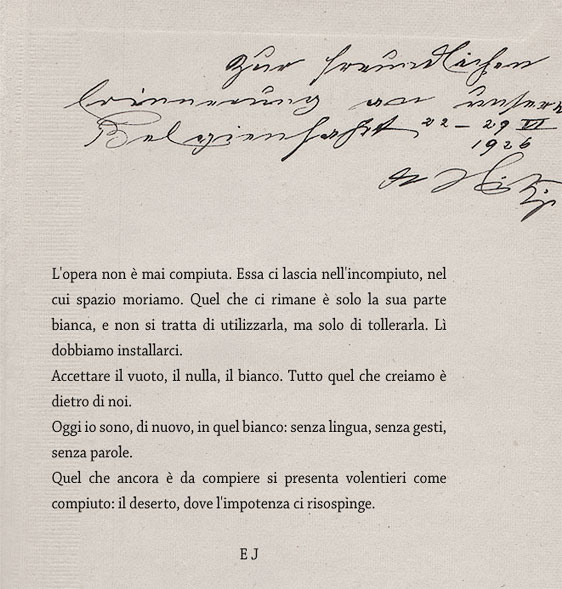 Zur freundlichen
Erinnerung an unsere
Belgienfahrt 22 – 29 VI
1926
L'opera non è mai compiuta. Essa ci lascia nell'incompiuto, nel
cui spazio moriamo. Quel che ci rimane è solo la sua parte
bianca, e non si tratta di utilizzarla, ma solo di tollerarla. Lì
dobbiamo installarci.
Accettare il vuoto, il nulla, il bianco. Tutto quel che creiamo è
dietro di noi.
Oggi io sono, di nuovo, in quel bianco: senza lingua, senza gesti,
senza parole.
Quel che ancora è da compiere si presenta volentieri come
compiuto: il deserto, dove l'impotenza ci risospinge.
E J